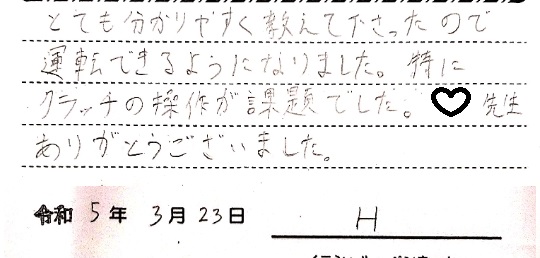 とても分かりやすく教えて下さったので
運転できるようになりました。特に
クラッチの操作が課題でした。♡先生
ありがとうございました。
令和 5年 3月 23日 H